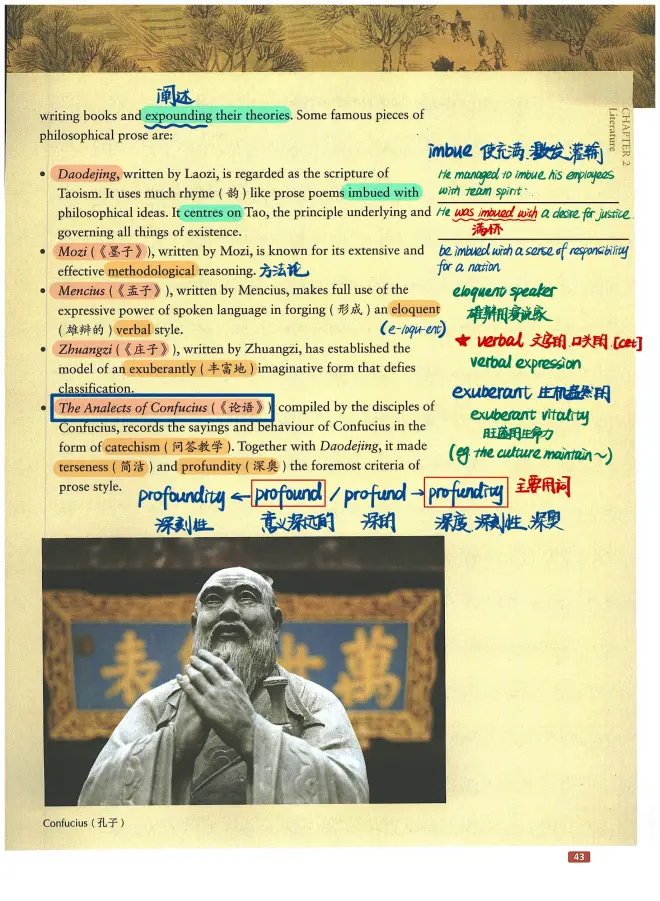 阐述
writing books and expounding their theories. Some famous pieces of
philosophical prose are:
CHAPTER 2
Literature
• Daodejing, written by Laozi, is regarded as the scripture of
Taoism. It uses much rhyme (韵) like prose poems imbued with
philosophical ideas. It centres on Tao, the principle underlying and
governing all things of existence.
• Mozi (《墨子》), written by Mozi, is known for its extensive and
effective methodological reasoning. 方法论
• Mencius (《孟子》), written by Mencius, makes full use of the
expressive power of spoken language in forging (形成) an eloquent
(雄辩的) verbal style.
(e-loqu-ent)
• Zhuangzi (《庄子》), written by Zhuangzi, has established the
model of an exuberantly (丰富地) imaginative form that defies
classification.
• The Analects of Confucius (《论语》), compiled by the disciples of
Confucius, records the sayings and behaviour of Confucius in the
form of catechism (问答教学). Together with Daodejing, it made
terseness (简洁) and profundity (深奥) the foremost criteria of
prose style.
imbue 使充满.激发.灌输
He managed to imbue his employees
with team spirit.
He was imbued with a desire for justice.
满怀
be imbued with a sense of responsibility
for a nation
eloquent speaker
雄辩的演说家
★ verbal 文字的.口头的.[cet]
verbal expression
exuberant 生机盎然的
exuberant vitality
旺盛的生命力
(eg. the culture maintain ~)
profoundity ← profound / profund → profundity 主要用词
深刻性 意义深远的 深的 深度.深刻性.深奥
萬世師表
Confucius (孔子)
43